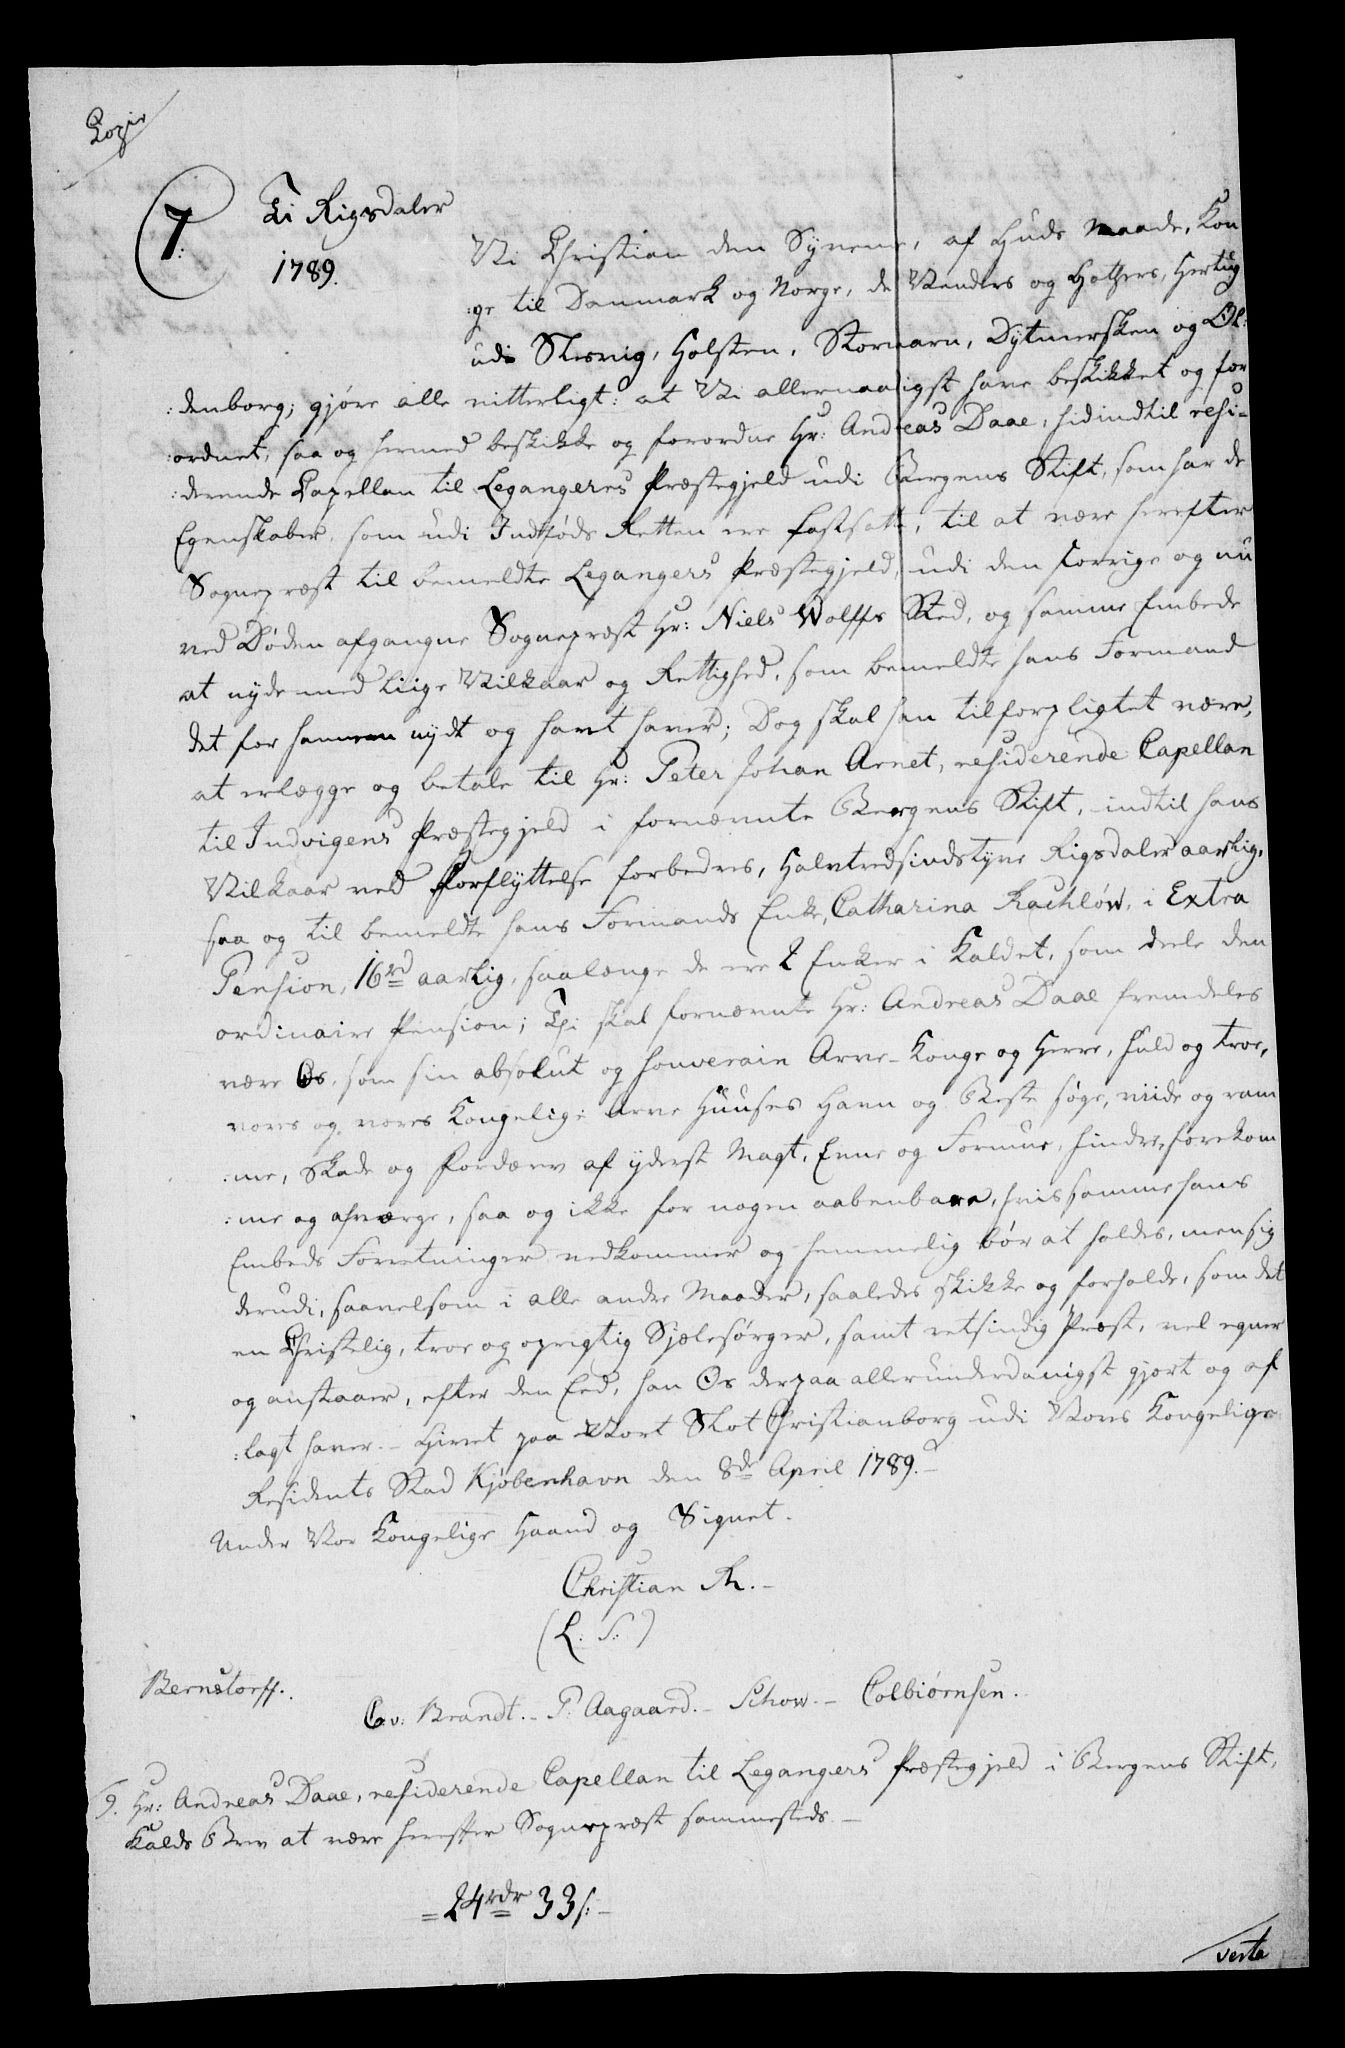 Copie
7: Ti Rigsdaler
1789.
Vi Christian den Syvende, af Guds Naade, Kon
:ge til Danmark og Norge, de Venders og Gothers, Hertug
udi Slesvig, Holsten, Stormarn, Dytmersken og Ol:
:denborg; gjøre alle vitterligt: at Vi allernaadigst have beskikket og for
:ordnet, saa og hermed beskikke og forordne Hr: Andreas Daae, hidindtil resi-
:derende Capellan til Legangeres Præstegjeld udi Bergens Stift, som har de
Egenskaber, som udi Indføds Retten ere fastsatte, til at være herefter
Sognepræst til bemeldte Legangers Præstegjeld, udi den forrige og nu
ved Døden afgangne Sognepræst Hr: Niels Wolffs Sted, og samme Embede
at nyde med liige Vilkaar og Rettighed, som bemeldte hans Formand
det for hannem nydt og havt haver; Dog skal han tilforpligtet være,
at erlægge og betale til Hr: Peter Johan Arnet, residerende Capellan
til Indvigens Præstegjeld i fornævnte Bergens Stift, indtil hans
Vilkaar ved Forflyttelse forbedres, Halvtredsindstyve Rigsdaler aarlig,
saa og til bemeldte hans Formands Enke, Catharina Rachløw, i Extra
Pension, 16 rd aarlig, saalænge de ere 2 Enker i Kaldet, som deele den
ordinaire Pension; Thi skal fornævnte Hr: Andreas Daae fremdeles
være Os, som sin absolut og souverain Arve-Konge og Herre, huld og troe,
vores og vores Kongelige Arve Huuses Gavn og Beste søge, viide og ram
:me, Skade og Fordærv af yderst Magt, Evne og Formue, hindre, forekom
:me og afværge, saa og ikke for nogen aabenbare, hvis samme hans
Embeds Forretninger vedkommer og hemmelig bør at holdes, men sig
derudi, saavelsom i alle andre Maader, saaledes skikke og forholde, som det
en Christelig, troe og oprigtig Sjælesørger, samt retsindig Præst, vel egner
og anstaaer, efter den Eed, han Os derpaa allerunderdanigst gjort og af
:lagt haver.- Givet paa Vort Slot Christianborg udi Vores Kongelige
Residents Stad Kjøbenhavn den 8de April 1789.-
Under Vor Kongelige Haand og Signet.
Christian R.-
(L. S.)
Bernstorff.
C. v: Brandt.- P: Aagaard.- Schow.- Colbiørnsen.
9. Hr: Andreas Daae, residerende Capellan til Legangers Præstegjeld i Bergens Stift,
Kalds Brev at være herefter Sognepræst sammesteds.-
= 24 rdr 33 s:-
verte